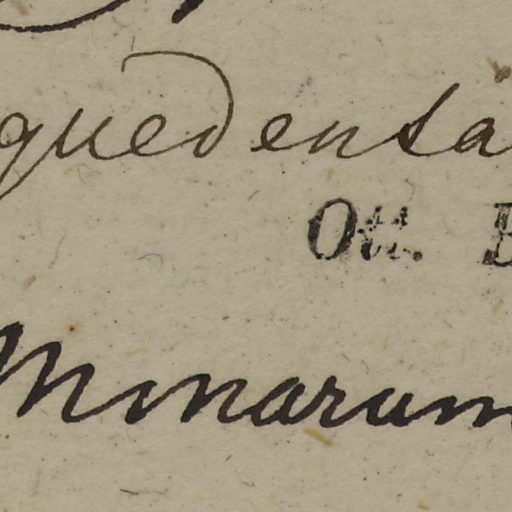 quedensa
Ott. B
Minarum